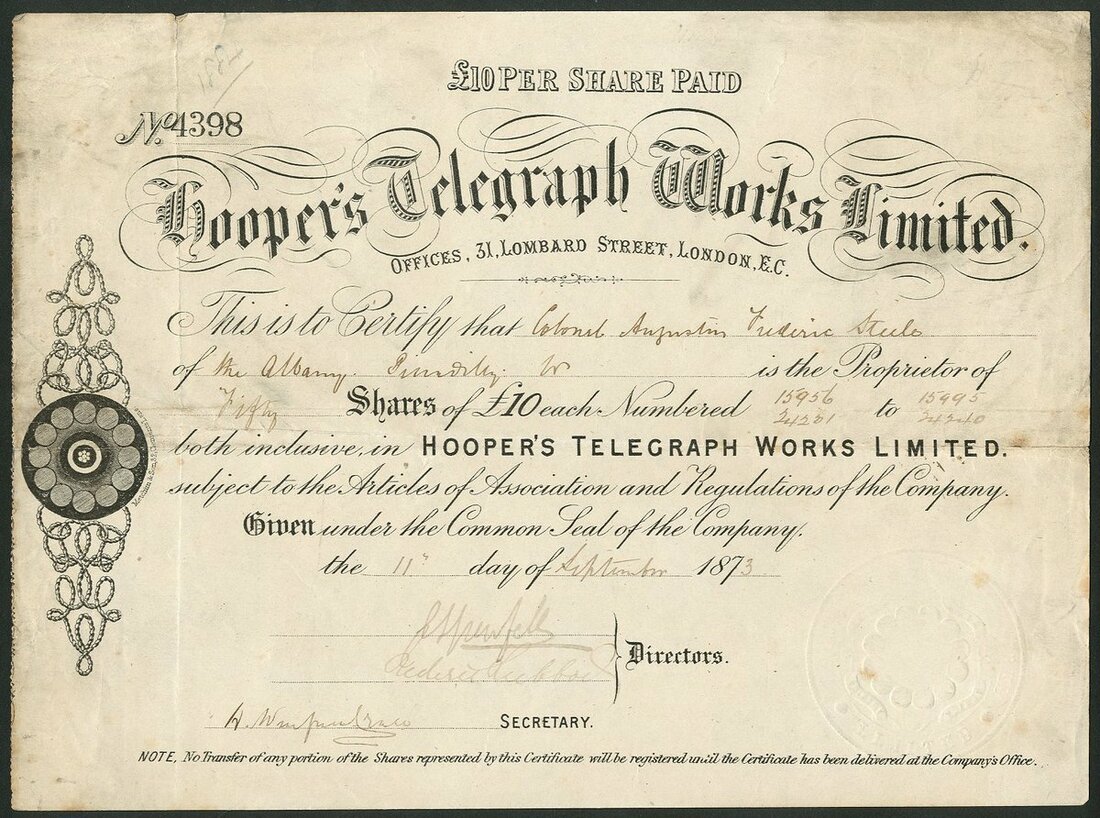 £10 PER SHARE PAID
No. 4398
Hooper's Telegraph Works Limited.
OFFICES, 31, LOMBARD STREET, LONDON, E.C.
This is to Certify that Colonel Augustus Frederic Steele
of the Albany. Piccadilly. W is the Proprietor of
Fifty Shares of £10 each Numbered 15956 to 15995
24231 24240
both inclusive, in HOOPER'S TELEGRAPH WORKS LIMITED.
subject to the Articles of Association and Regulations of the Company.
Given under the Common Seal of the Company.
the 11" day of September 1873
Directors.
SECRETARY.
NOTE, No Transfer of any portion of the Shares represented by this Certificate will be registered until the Certificate has been delivered at the Company's Office.